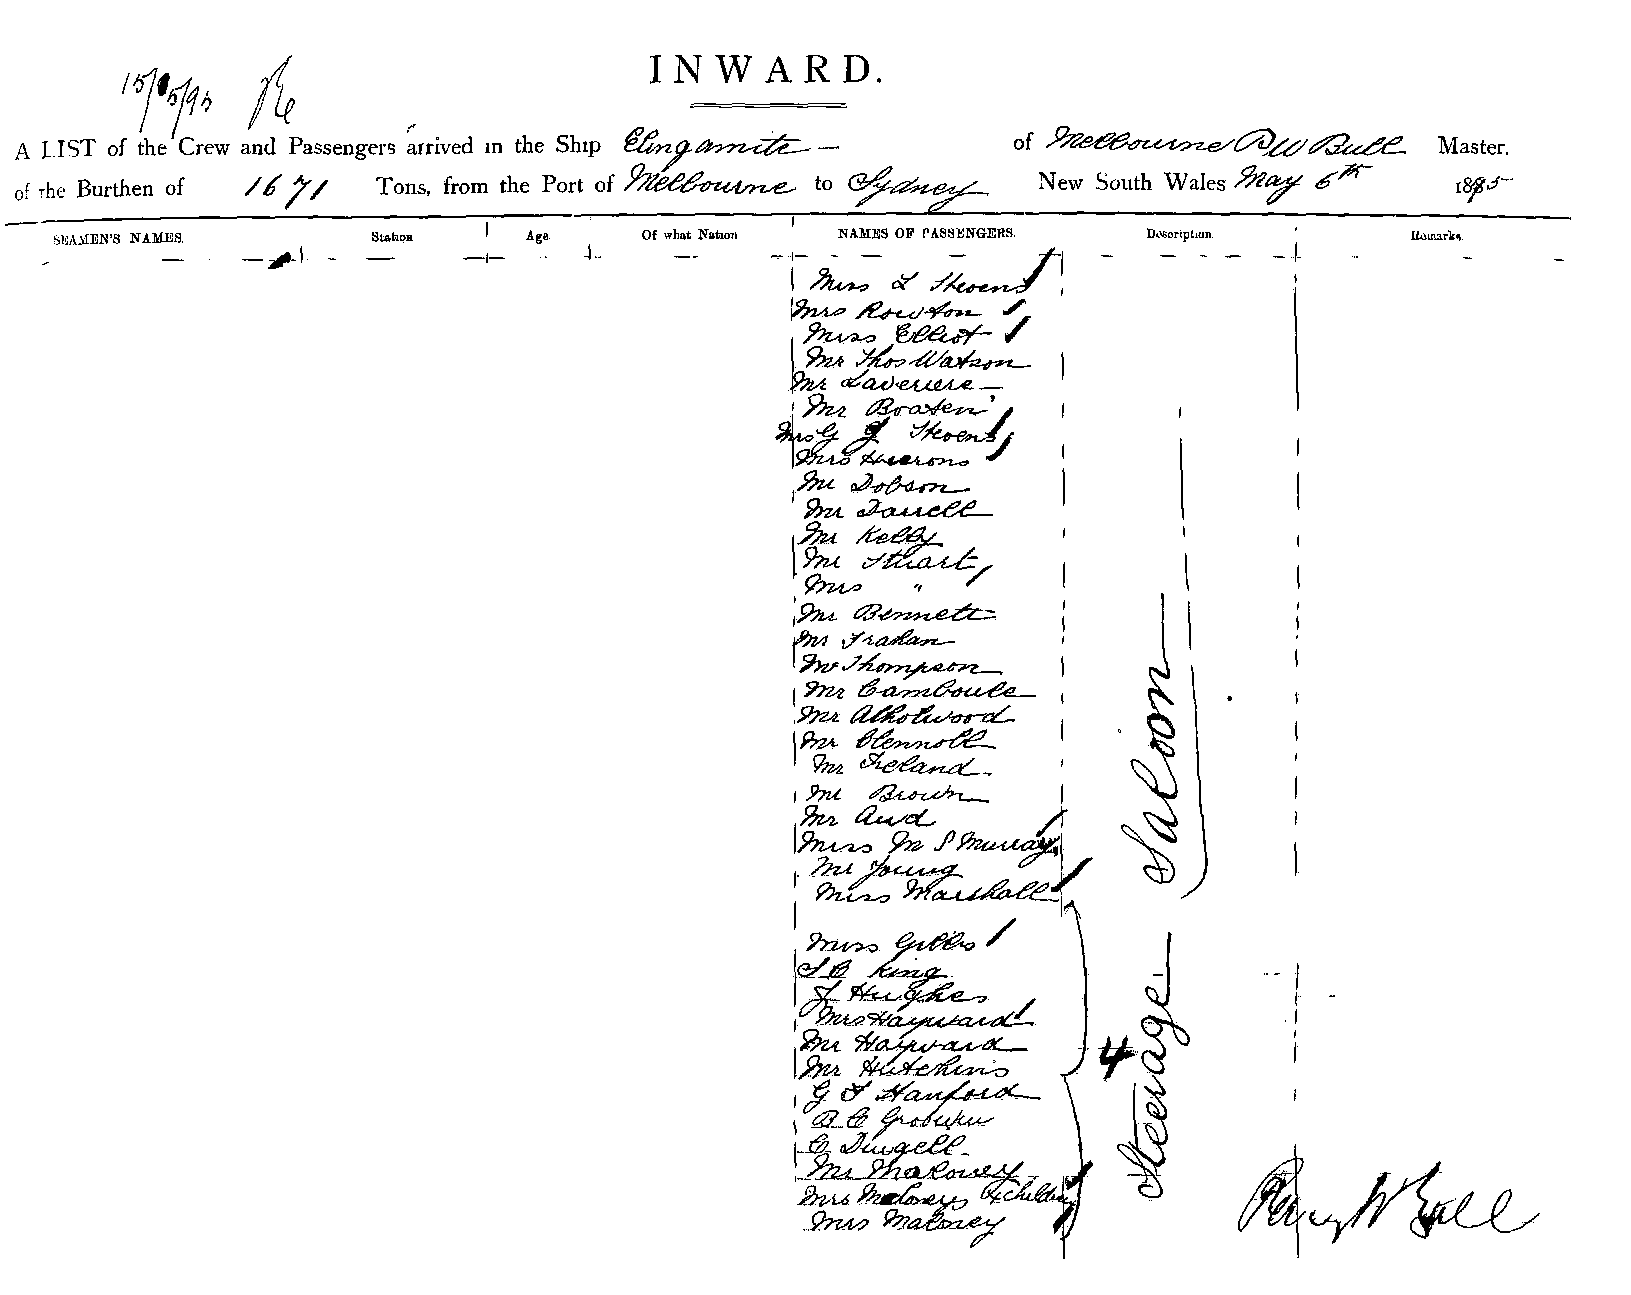 INWARD.
15/05/95
A LIST of the Crew and Passengers arrived in the Ship Elingamite — of Melbourne P W Bull Master.
of the Burthen of 1671 Tons, from the Port of Melbourne to Sydney New South Wales May 6th 1895
SEAMEN'S NAMES. Station Age. Of what Nation NAMES OF PASSENGERS. Description. Remarks.
Miss L Stevens
Mrs Rowton
Miss Elliot
Mr Thos Watson
Mr Laveriere
Mr Boaten
Mrs G J Stevens
Mrs
Mr Dobson
Mr Darrell
Mr Kelly
Mr Stuart
Mrs "
Mr Bennett
Mr
Mr Thompson
Mr Camboule
Mr Atholwood
Mr Clennoll
Mr Ireland
Mr Brown
Mr
Miss M S Murray
Mr Young
Miss Marshall
Saloon
Miss Gibbs
S C King
J Hughes
Mrs Hayward
Mr Hayward
Mr Hutchins
G F Hanford
B C
C Dingell
Mr Maloney
Mrs Maloneys 4 children
Mrs Maloney
4
Steerage
Percy W Bull